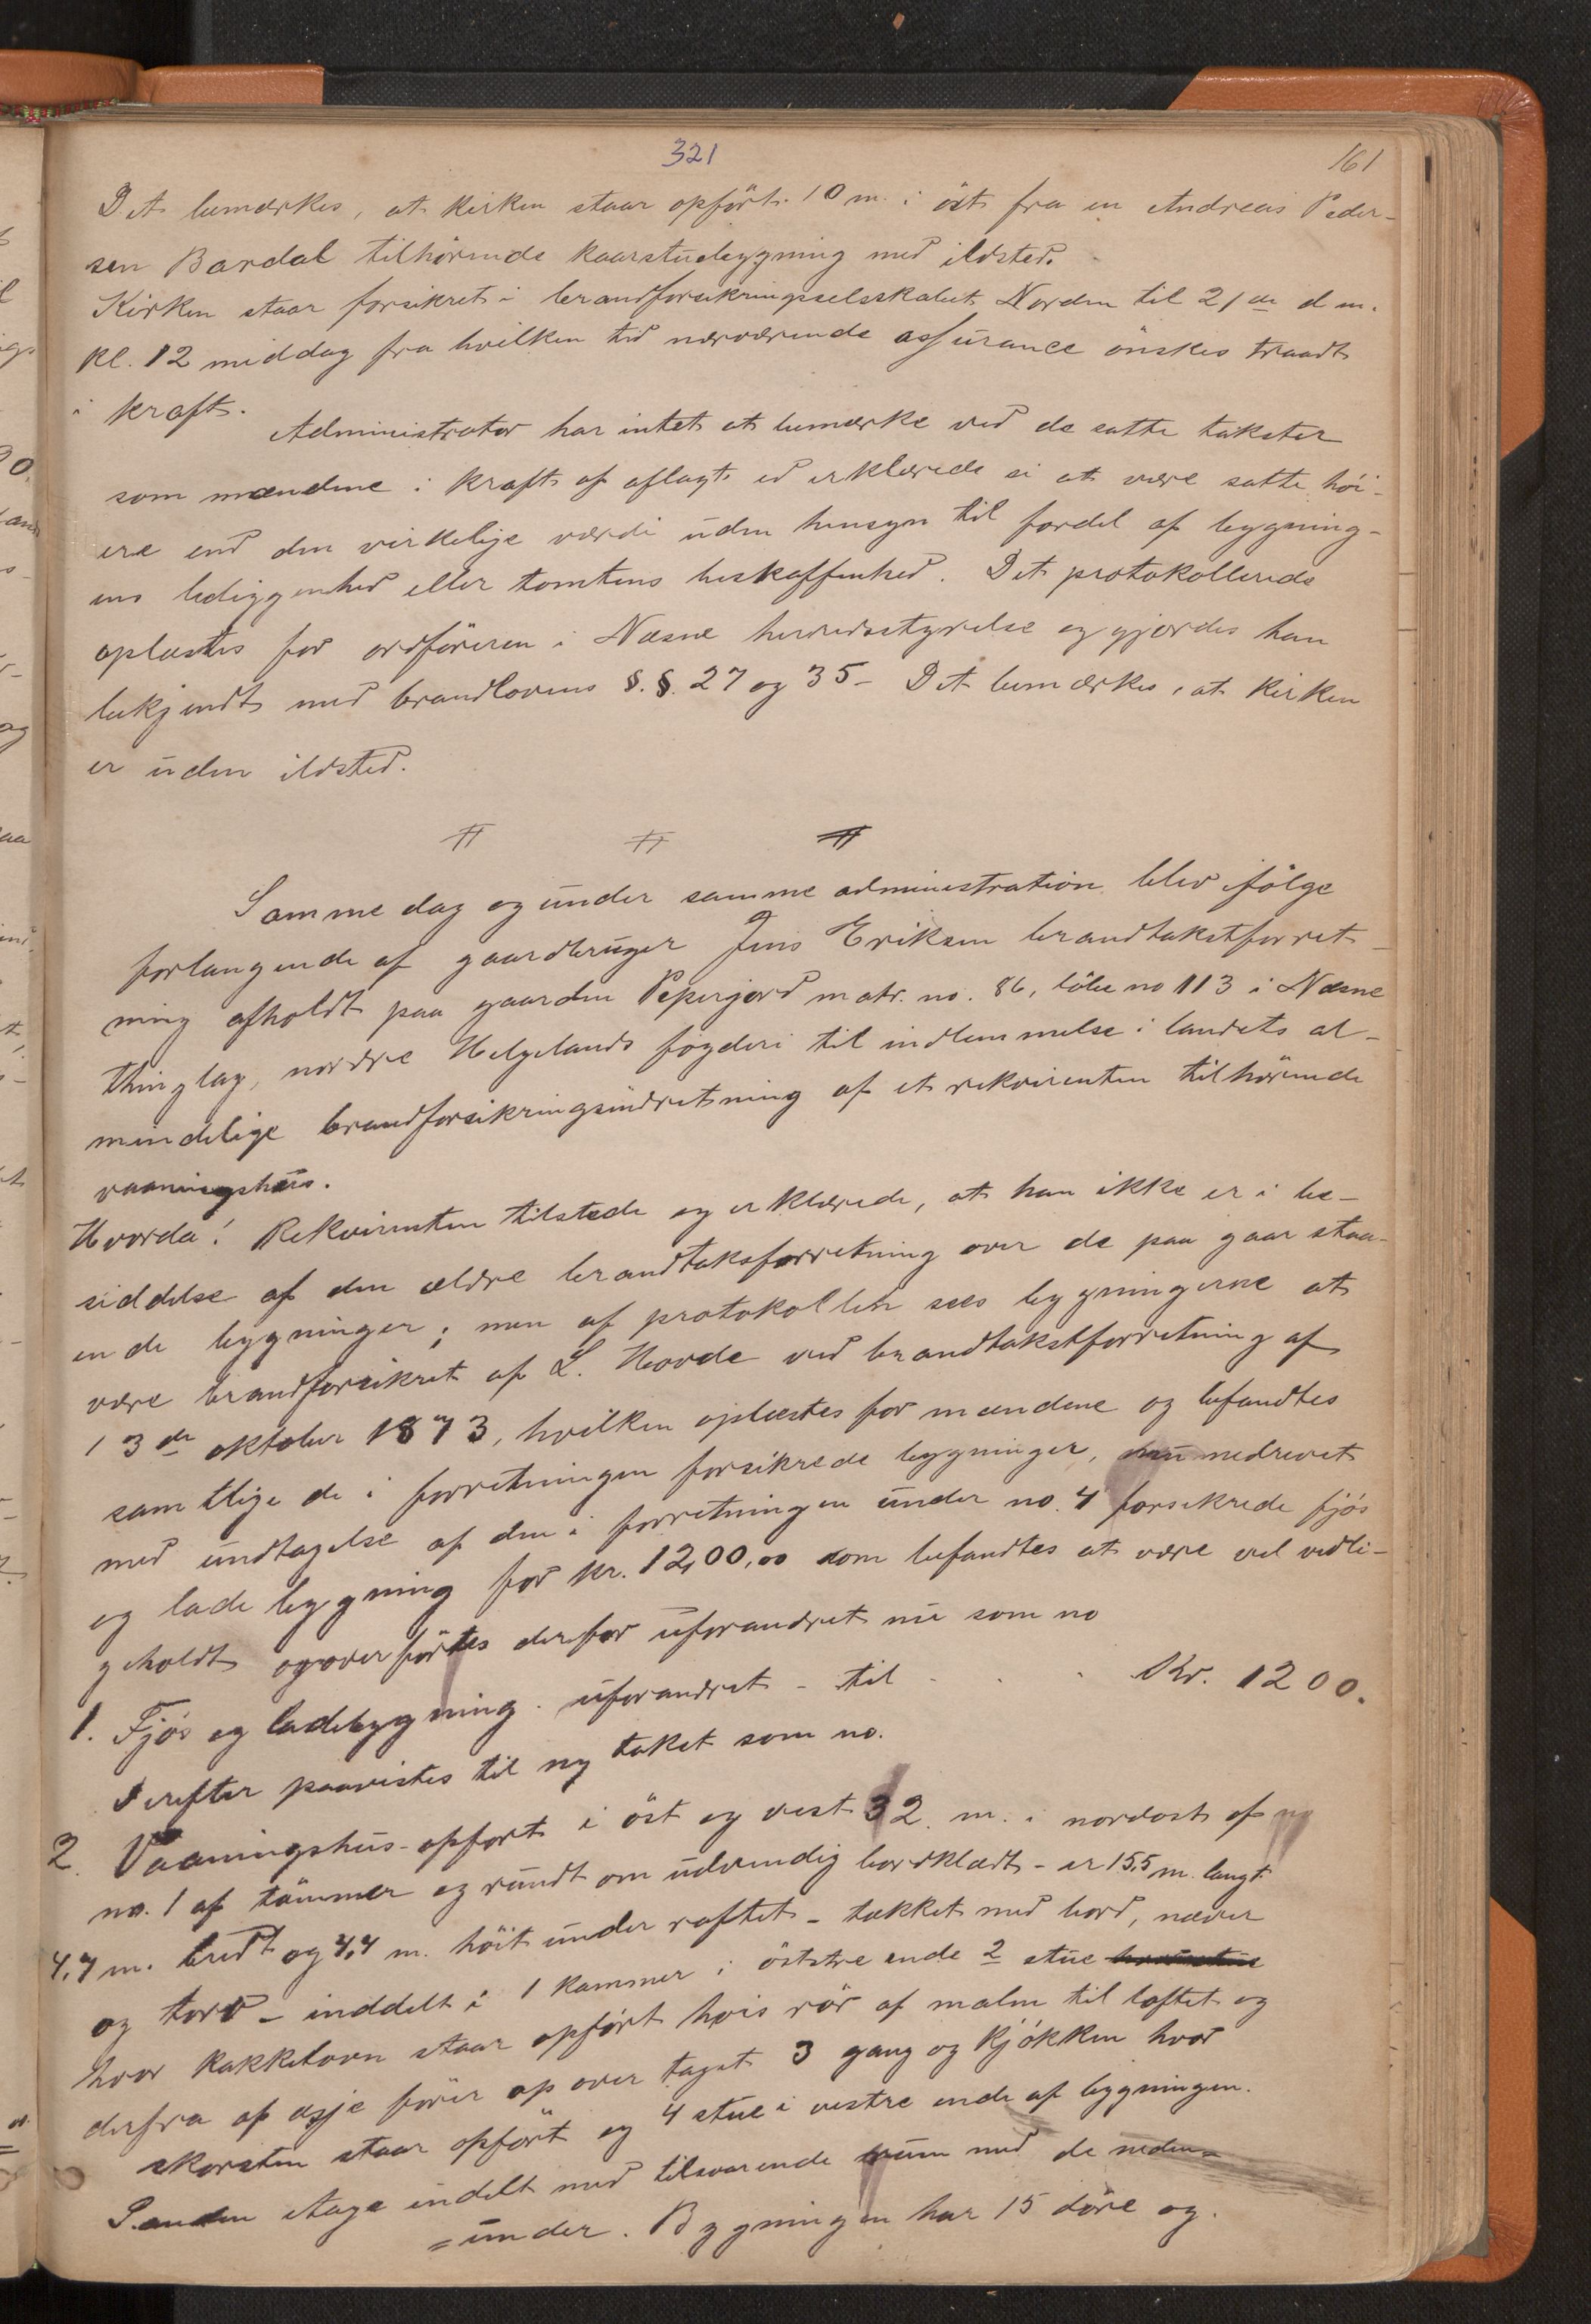 321
161
Det bemærkes, at kirken staar opført 10 m. i öst fra en Andreas Peder-
sen Bardal tilhørende kaarstuebygning med ildsted.
Kirken staar forsikret i brandforsikringsselskabet Norden til 21de d m.
kl. 12 middag fra hvilken tid nærværende assurance ønskes traadt
i kraft.
Administrator har intet at bemærke ved de satte takster
som mændene i kraft af aflagt ed erklærede ei at være satte høi-
ere end den virkelige værdi uden hensyn til fordel af bygning-
ens beliggenhed eller tomtens beskaffenhed. Det protokollerede
oplæstes for ordføreren i Næsne herredsstyrelse og gjordes han
bekjendt med brandlovens §.§. 27 og 35 - Det bemærkes, at kirken
er uden ildsted.
Samme dag og under samme administration blev ifølge
forlangende af gaardbruger Jens Eriksen brandtakstforret-
ning afholdt paa gaarden matr. no. 86, løbe no 113 i Næsne
thinglag, nordre Helgelands fogderi til indlemmelse i landets al-
mindelige brandforsikringsindretning af et rekvirenten tilhørende
vaaningshus.
Hvorda! Rekvirenten tilstede og erklærede, at han ikke er i be-
siddelse af den ældre brandtaksforretning over de paa gaar staa-
ende bygninger; men af protokollen sees bygningerne at
være brandforsikret af L. Hovde ved brandtakstforretning af
13de oktober 1873, hvilken oplæstes for mændene og befandtes
samtlige de i forretningen forsikrede bygninger, nu nedrevet
med undtagelse af den i forretningen under no. 4 forsikrede fjós
og ladebygning for kr. 12,00,00 som befandtes at være vel vedli-
geholdt og overførtes derefor uforandret nu som no
1. Fjós og ladebygning - uforandret - til - - - Kr. 1200.
Derefter paavistes til ny takst som no.
2. Vaaningshus - opført i öst og vest 32 m. i nordost af
no. 1 af tömmer og rundt om udvendig bordklædt - er 15,5 m. langt
4,7 m. bredt og 4,4 m. höit under raftet - tækket med bord, næver
og torv - inddelt i 1 kammer i östre ende 2 stue
hvor kakkelovn staar opført hvis rör af malm til loftet og
derfra af esje förer op over taget 3 gang og kjökken hvor
skorsten staar opført og 4 stue i vestre ende af bygningen.
Anden etage indelt med tilsvarende rum med de neden=
=under. Bygningen har 15 döre og.